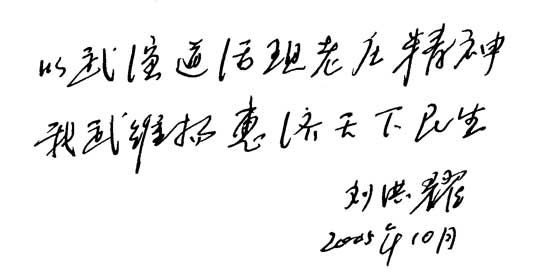 以武演道活现老庄精神
我武维扬惠济天下民生
刘洪耀
2005年10月